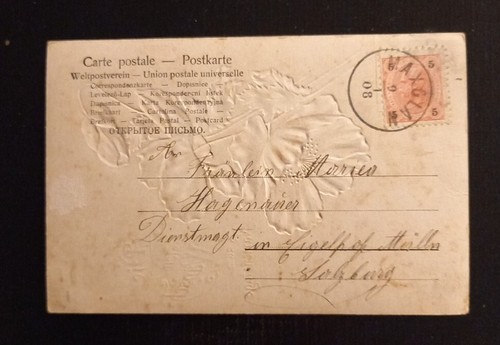 Carte postale — Postkarte
Weltpostverein – Union postale universelle
Correspondenzkarte — Dopisnice —
Levelező-Lap — Korespondencni listek
Dopisnica — Karta Korespondencyjna
Brefkaart — Cartolina Postale —
— Tarjeta Postal — Postcard
ОТКРЫТОЕ ПИСЬМО.
5 5
5
MAXGLAN
08
An
Fräulein Maria
Hagenauer
Dienstmagt
in
Salzburg